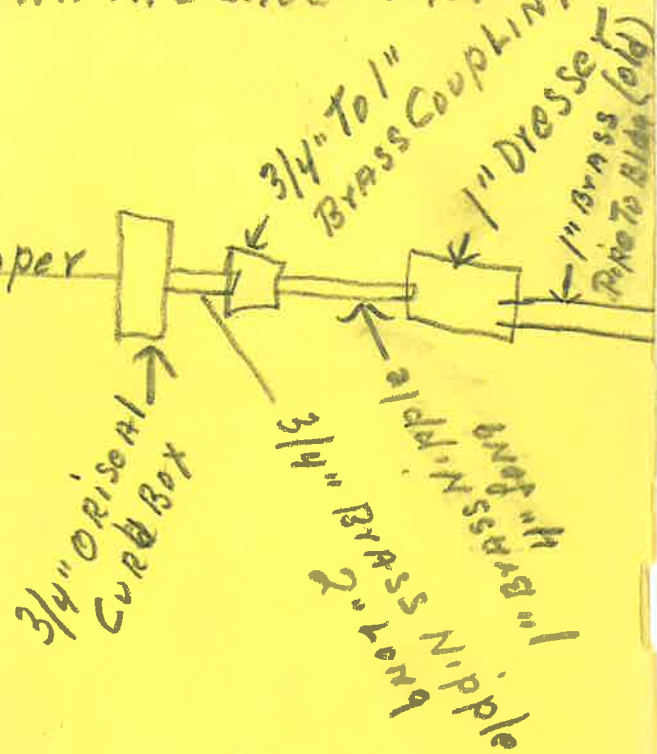 3/4" To 1"
BrASS COUPLIN
1" Dresser
1" BrASS
Pipe To Bldg (old)
3/4" ORiSeAl
CURB BOX
3/4" BrASS Nipple
2" LONG
1" BrASS Nipple
4" LONG